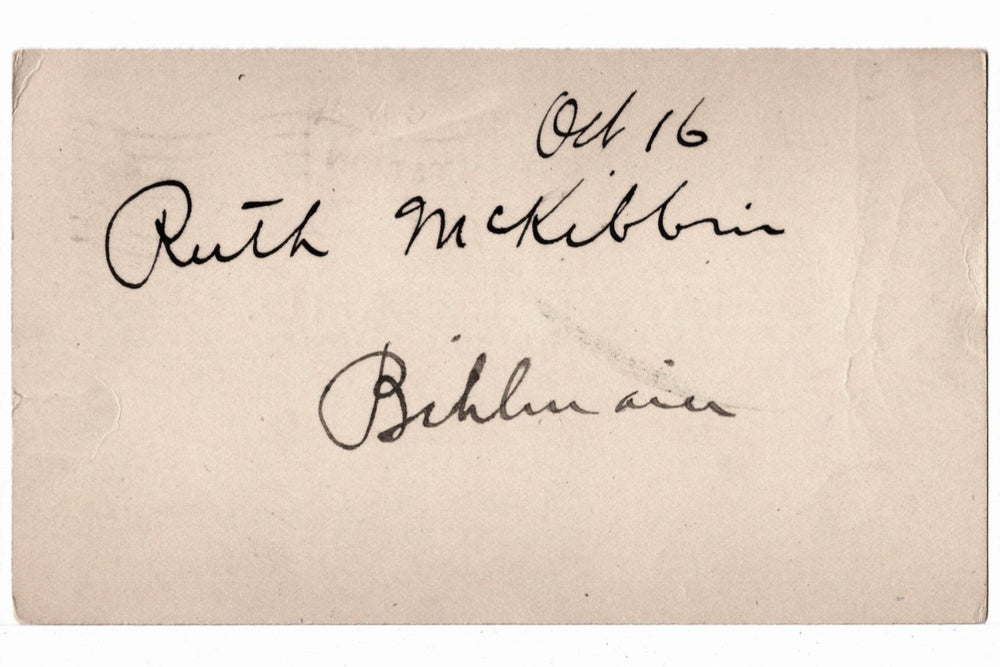 Oct 16
Ruth McKibbin
Bihlmaier